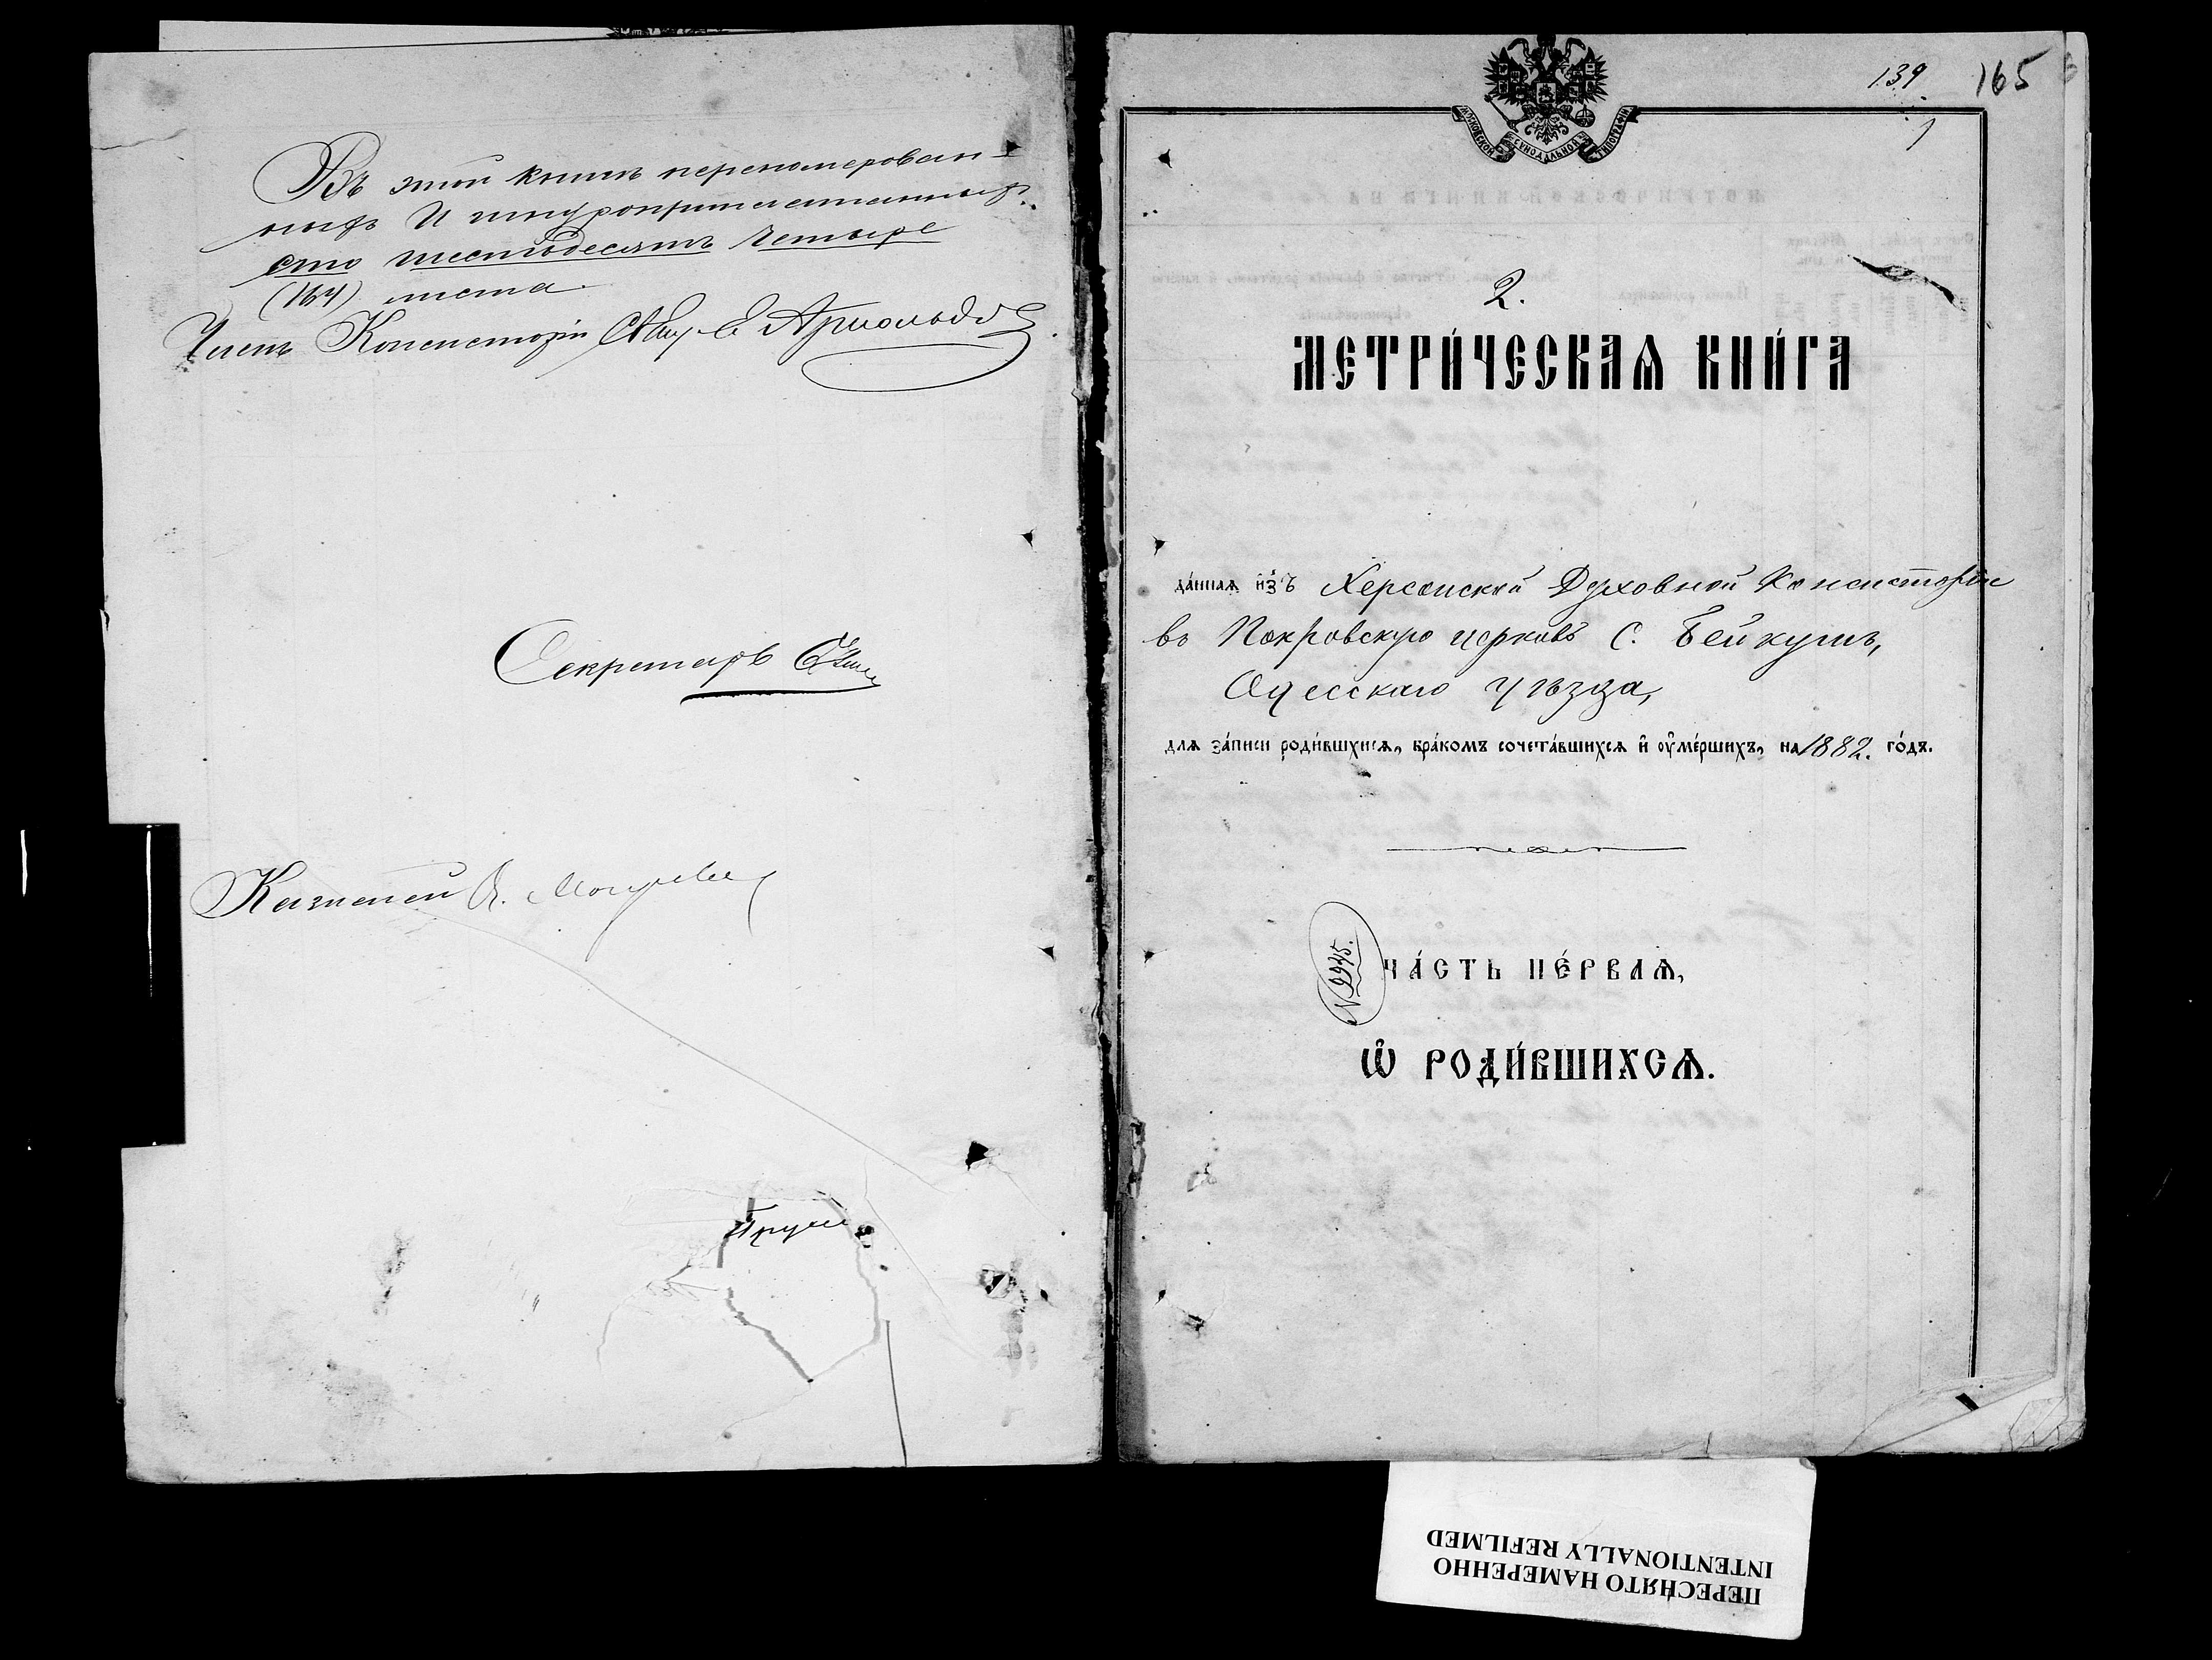 Въ этой книгѣ перенумерован-
ныхъ и шнуроприпечатанныхъ
сто шестьдесятъ четыре
(164) листа.
Членъ Консисторіи Свящ. Арнольдовъ
Секретарь
Казначей
139 165
1
МОСКОВСКОЙ СУНОДАЛЬНОЙ ТИПОГРАФІИ
2.
МЕТРИ́ЧЕСКАѦ КНИ́ГА
да́ннаѧ и҆зъ Херсонской Духовной Консисторіи
въ Покровскую церковь с. Бейкушъ,
Одесскаго уѣзда,
для за́писи роди́вшихсѧ, бра́комъ сочета́вшихсѧ и҆ оу҆ме́ршихъ, на 1882. го́дъ.
№ 2945.
ЧА́СТЬ ПЕ́РВАѦ,
Ѡ҆ РОДИ́ВШИХСѦ.
ПЕРЕСНЯТО НАМЕРЕННО
INTENTIONALLY REFILMED